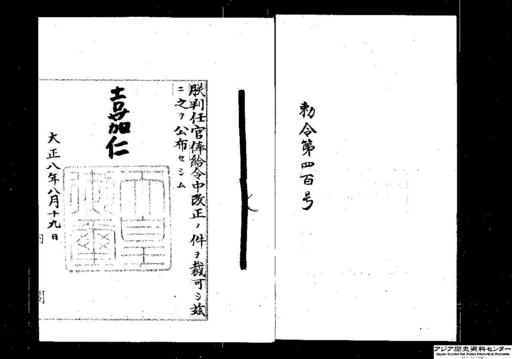 勅令第四百号
朕判任官俸給令中改正ノ件ヲ裁可シ茲
ニ之ヲ公布セシム
嘉仁
天皇御璽
大正八年八月十九日
アジア歴史資料センター
Japan Center for Asian Historical Records